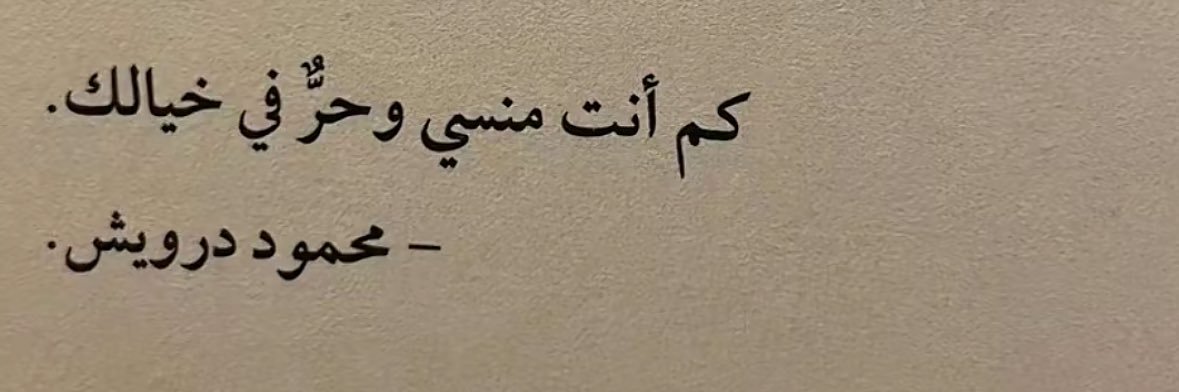 كم أنت منسي وحرٌّ في خيالك.
– محمود درويش.